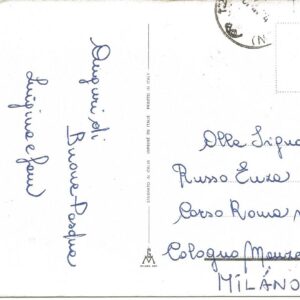 Auguri di
Buona Pasqua
Luigina e fam
Alla Signo
Russo Enza
Corso Roma
Cologno Monze
MILANO